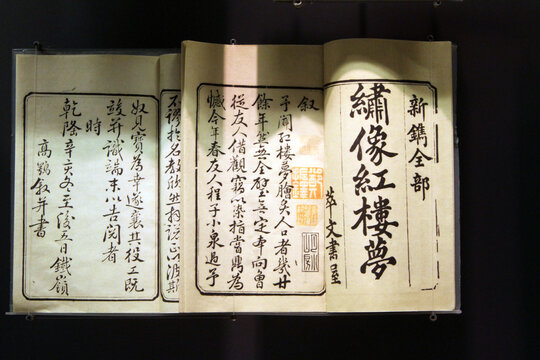 新鐫全部
繡像紅樓夢
萃文書屋
叙
予聞紅樓夢膾炙人口者幾廿
餘年然無全璧無定本向曾
從友人借觀竊以染指嘗鼎為
憾今年春友人程子小泉過予
不謬於名教欣然拜諾正以波斯
奴見寶為幸遂襄其役工既
竣并識端末以告閱者
時
乾隆辛亥冬至後五日鐵嶺
高鶚叙并書